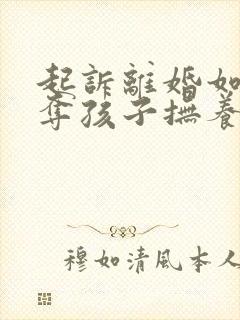 起訴離婚如
奪孩子撫養
穆如清風本人